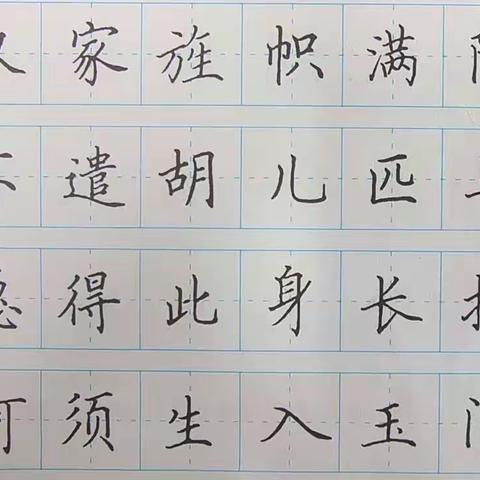 家旌帜满
遣胡儿匹
得此身长
须生入玉